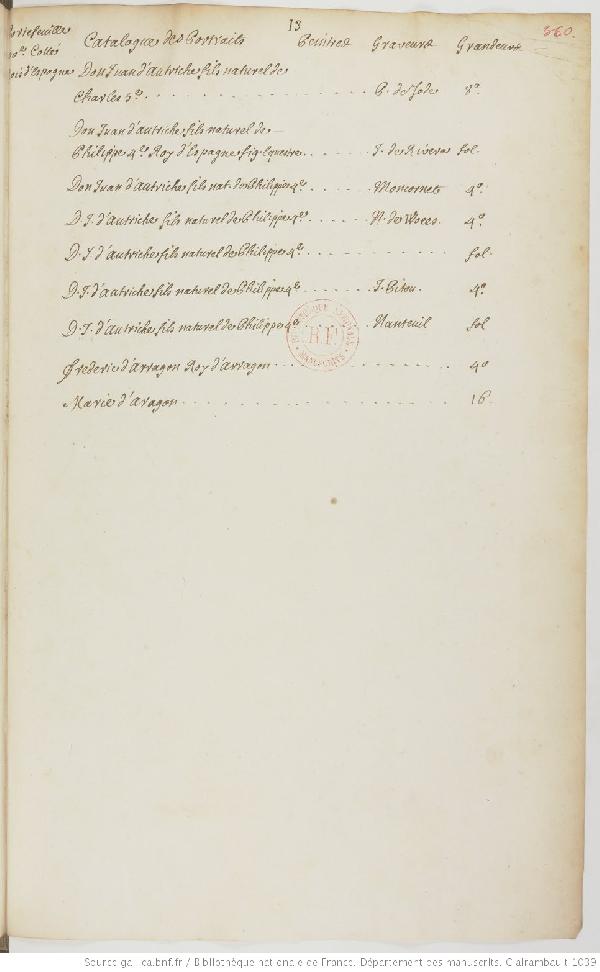 13
360.
Portefeuille Catalogue des Portraits Peintres Graveurs Grandeurs
Collés
Rois d'Espagne Don Juan d'autriche fils naturel de
Charles 5e. . . . . . . . . . P. de Jode 8o.
Don Juan d'autriche fils naturel de
Philippe 4e. Roy d'Espagne fig. Equestre . . . . . . J. de Rivera fol.
Don Juan d'autriche fils nat. de Philippe 4e. . . . . . . Moncornet 4o.
D. J. d'autriche fils naturel de Philippe 4e. . . . . . . 4o.
D. J. d'autriche fils naturel de Philippe 4e. . . . . . . fol.
D. J. d'autriche fils naturel de Philippe 4e. . . . . . . J. Bitou. 4o.
D. J. d'autriche fils naturel de Philippe 4e. Nanteuil fol
Frederic d'arragon Roy d'arragon . . . . . . 4o
Marie d'aragon . . . . . . 16.
Source gallica.bnf.fr / Bibliothèque nationale de France. Département des manuscrits. Clairambault 1039